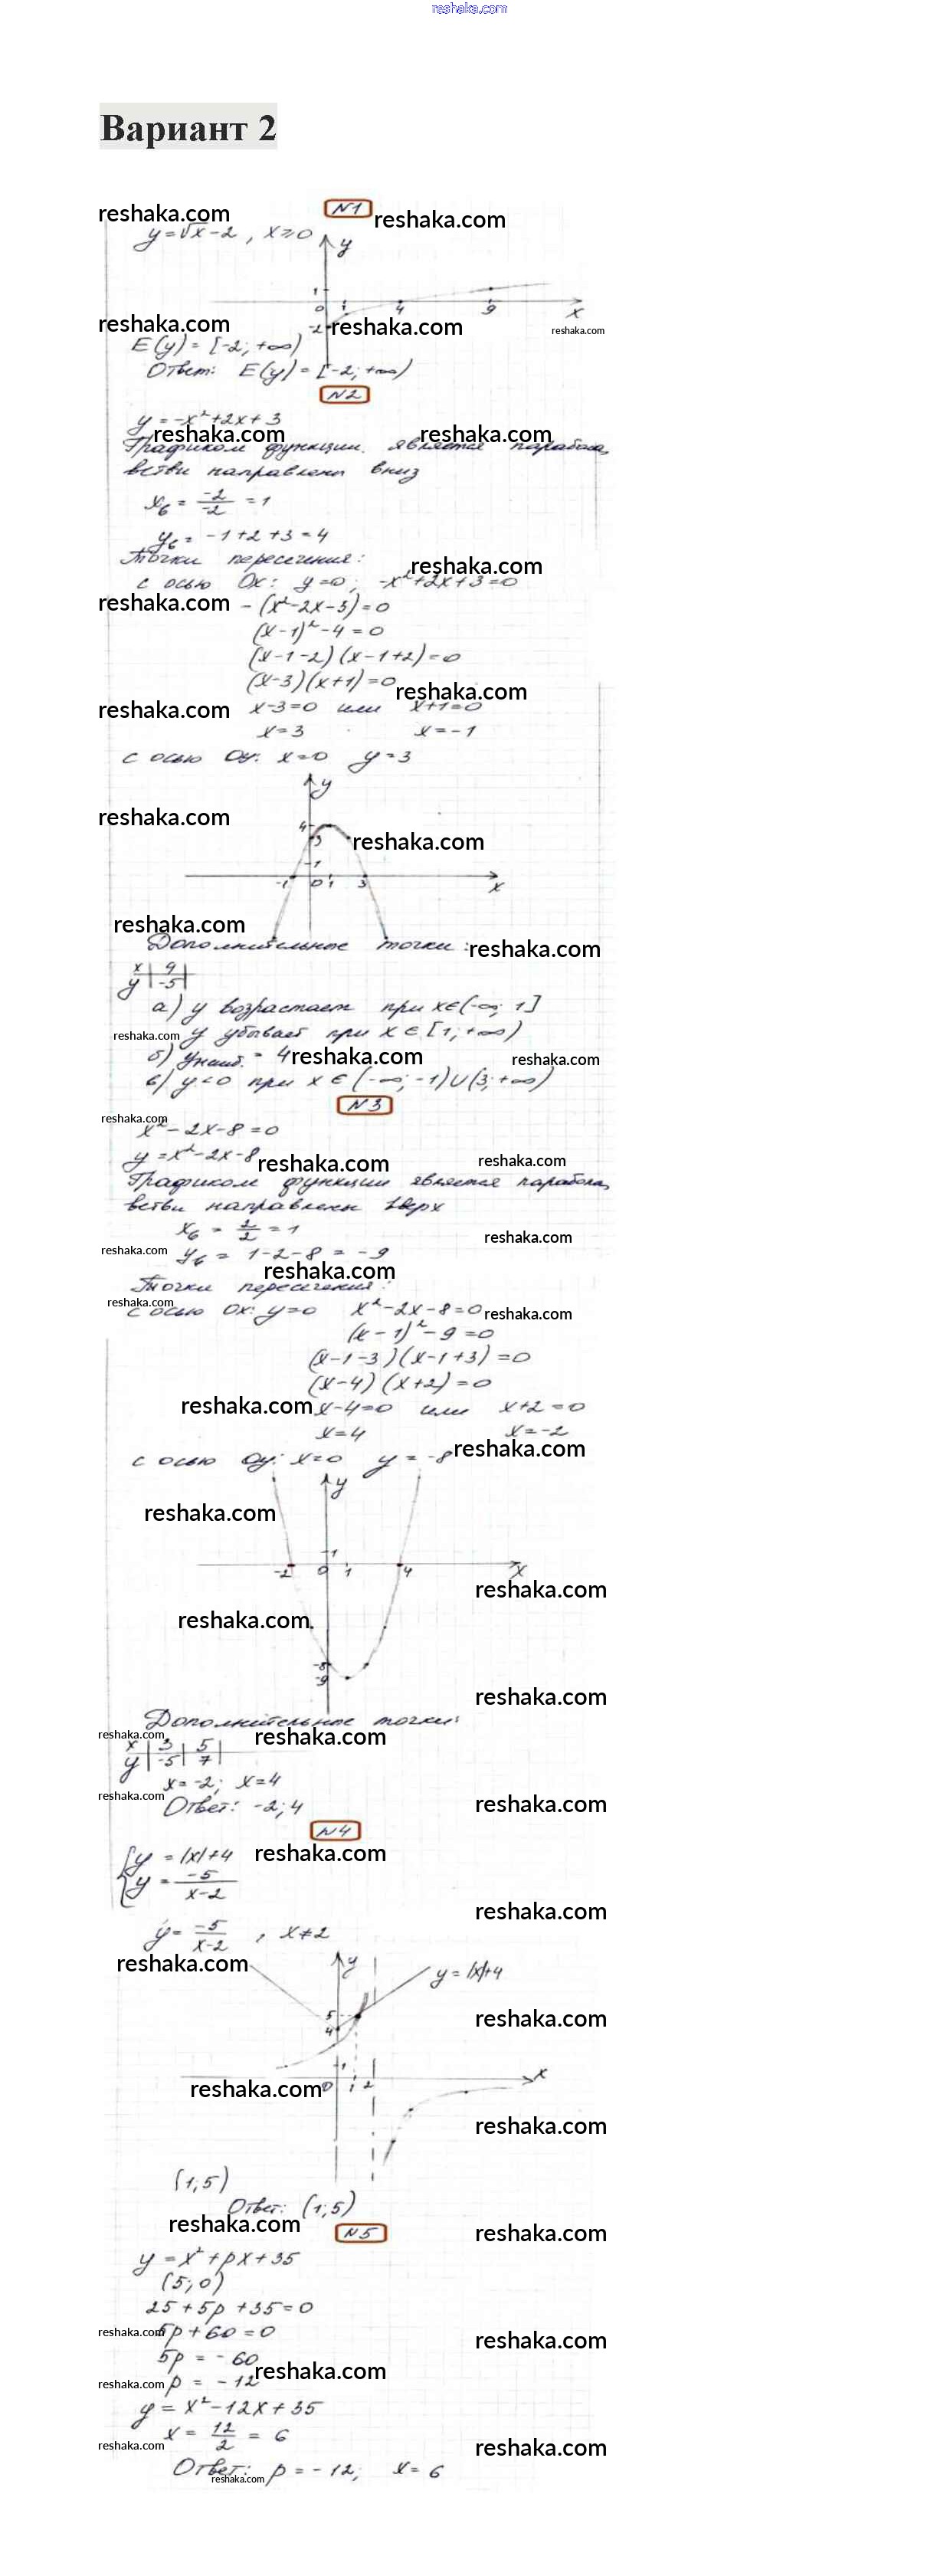 reshaka.com
Вариант 2
N1
reshaka.com reshaka.com
y=√x-2 , x≥0
y
1
0 1 4 9 x
-2
reshaka.com reshaka.com reshaka.com
E(y)= [-2; +∞)
Ответ: E(y)= [-2; +∞)
N2
y = -x²+2x+3
reshaka.com reshaka.com
Графиком функции является парабола,
ветви направлены вниз
x₆ = -2/-2 = 1
y₆ = -1+2+3=4
Точки пересечения:
reshaka.com
с осью Ox: y=0; -x²+2x+3=0
reshaka.com -(x²-2x-3)=0
(x-1)²-4=0
(x-1-2)(x-1+2)=0
(x-3)(x+1)=0
reshaka.com
reshaka.com x-3=0 или x+1=0
x=3 x=-1
с осью Oy: x=0 y=3
y
reshaka.com 4
3 reshaka.com
1
-1 0 1 3 x
reshaka.com
Дополнительные точки: reshaka.com
x | 4
y | -5
а) y возрастает при x∈(-∞; 1]
reshaka.com y убывает при x∈[1; +∞)
б) yнаиб. = 4 reshaka.com reshaka.com
в) y<0 при x∈(-∞; -1)∪(3; +∞)
N3
reshaka.com
x²-2x-8=0
y=x²-2x-8
reshaka.com reshaka.com
Графиком функции является парабола,
ветви направлены вверх
x₆ = 2/2 = 1
reshaka.com
reshaka.com y₆ = 1-2-8 = -9
reshaka.com
Точки пересечения:
reshaka.com
с осью Ox: y=0 x²-2x-8=0 reshaka.com
(x-1)²-9=0
(x-1-3)(x-1+3)=0
(x-4)(x+2)=0
reshaka.com x-4=0 или x+2=0
x=4 x=-2
reshaka.com
с осью Oy: x=0 y=-8
y
reshaka.com
1
-2 0 1 4 x
reshaka.com
reshaka.com
-8
-9
reshaka.com
Дополнительные точки:
reshaka.com reshaka.com
x | 3 | 5
y | -5 | 7
x=-2; x=4
reshaka.com
Ответ: -2; 4 reshaka.com
N4
reshaka.com
{y = |x|+4
{y = -5/x-2
reshaka.com
y= -5/x-2 , x≠2
reshaka.com y y=|x|+4
5
4
reshaka.com
1
0 1 2 x
reshaka.com
reshaka.com
(1;5)
Ответ: (1;5)
reshaka.com
N5 reshaka.com
y=x²+px+35
(5;0)
25+5p+35=0
reshaka.com 5p+60=0 reshaka.com
5p = -60
reshaka.com
reshaka.com p = -12
y=x²-12x+35
x = 12/2 = 6
reshaka.com reshaka.com
Ответ: p=-12; x=6
reshaka.com